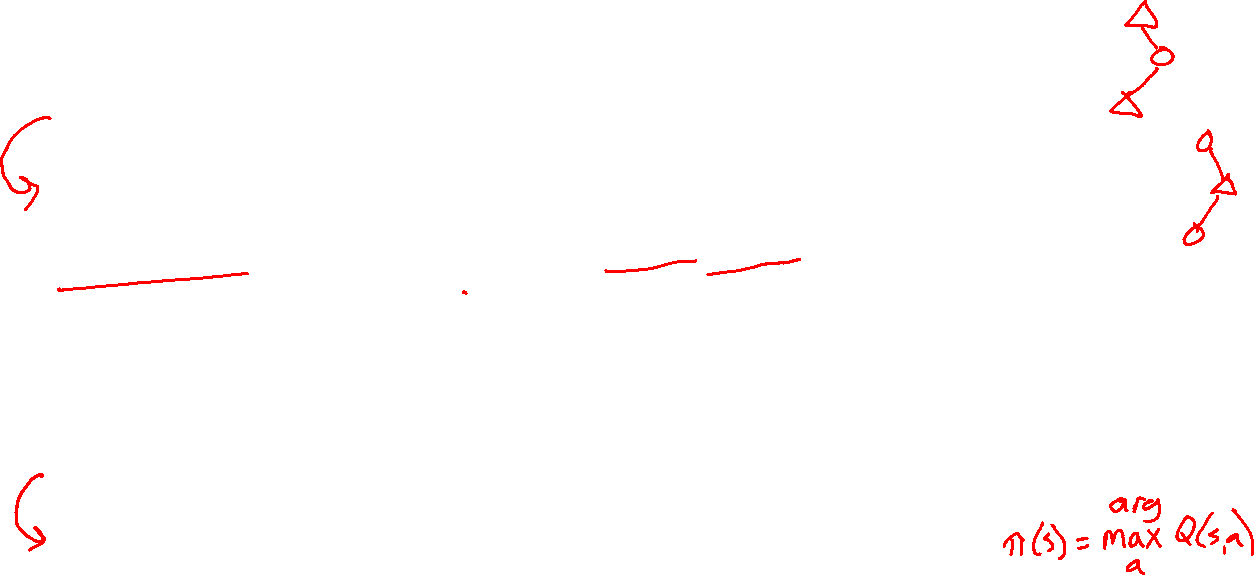 π(s) = arg max a Q(s,a)